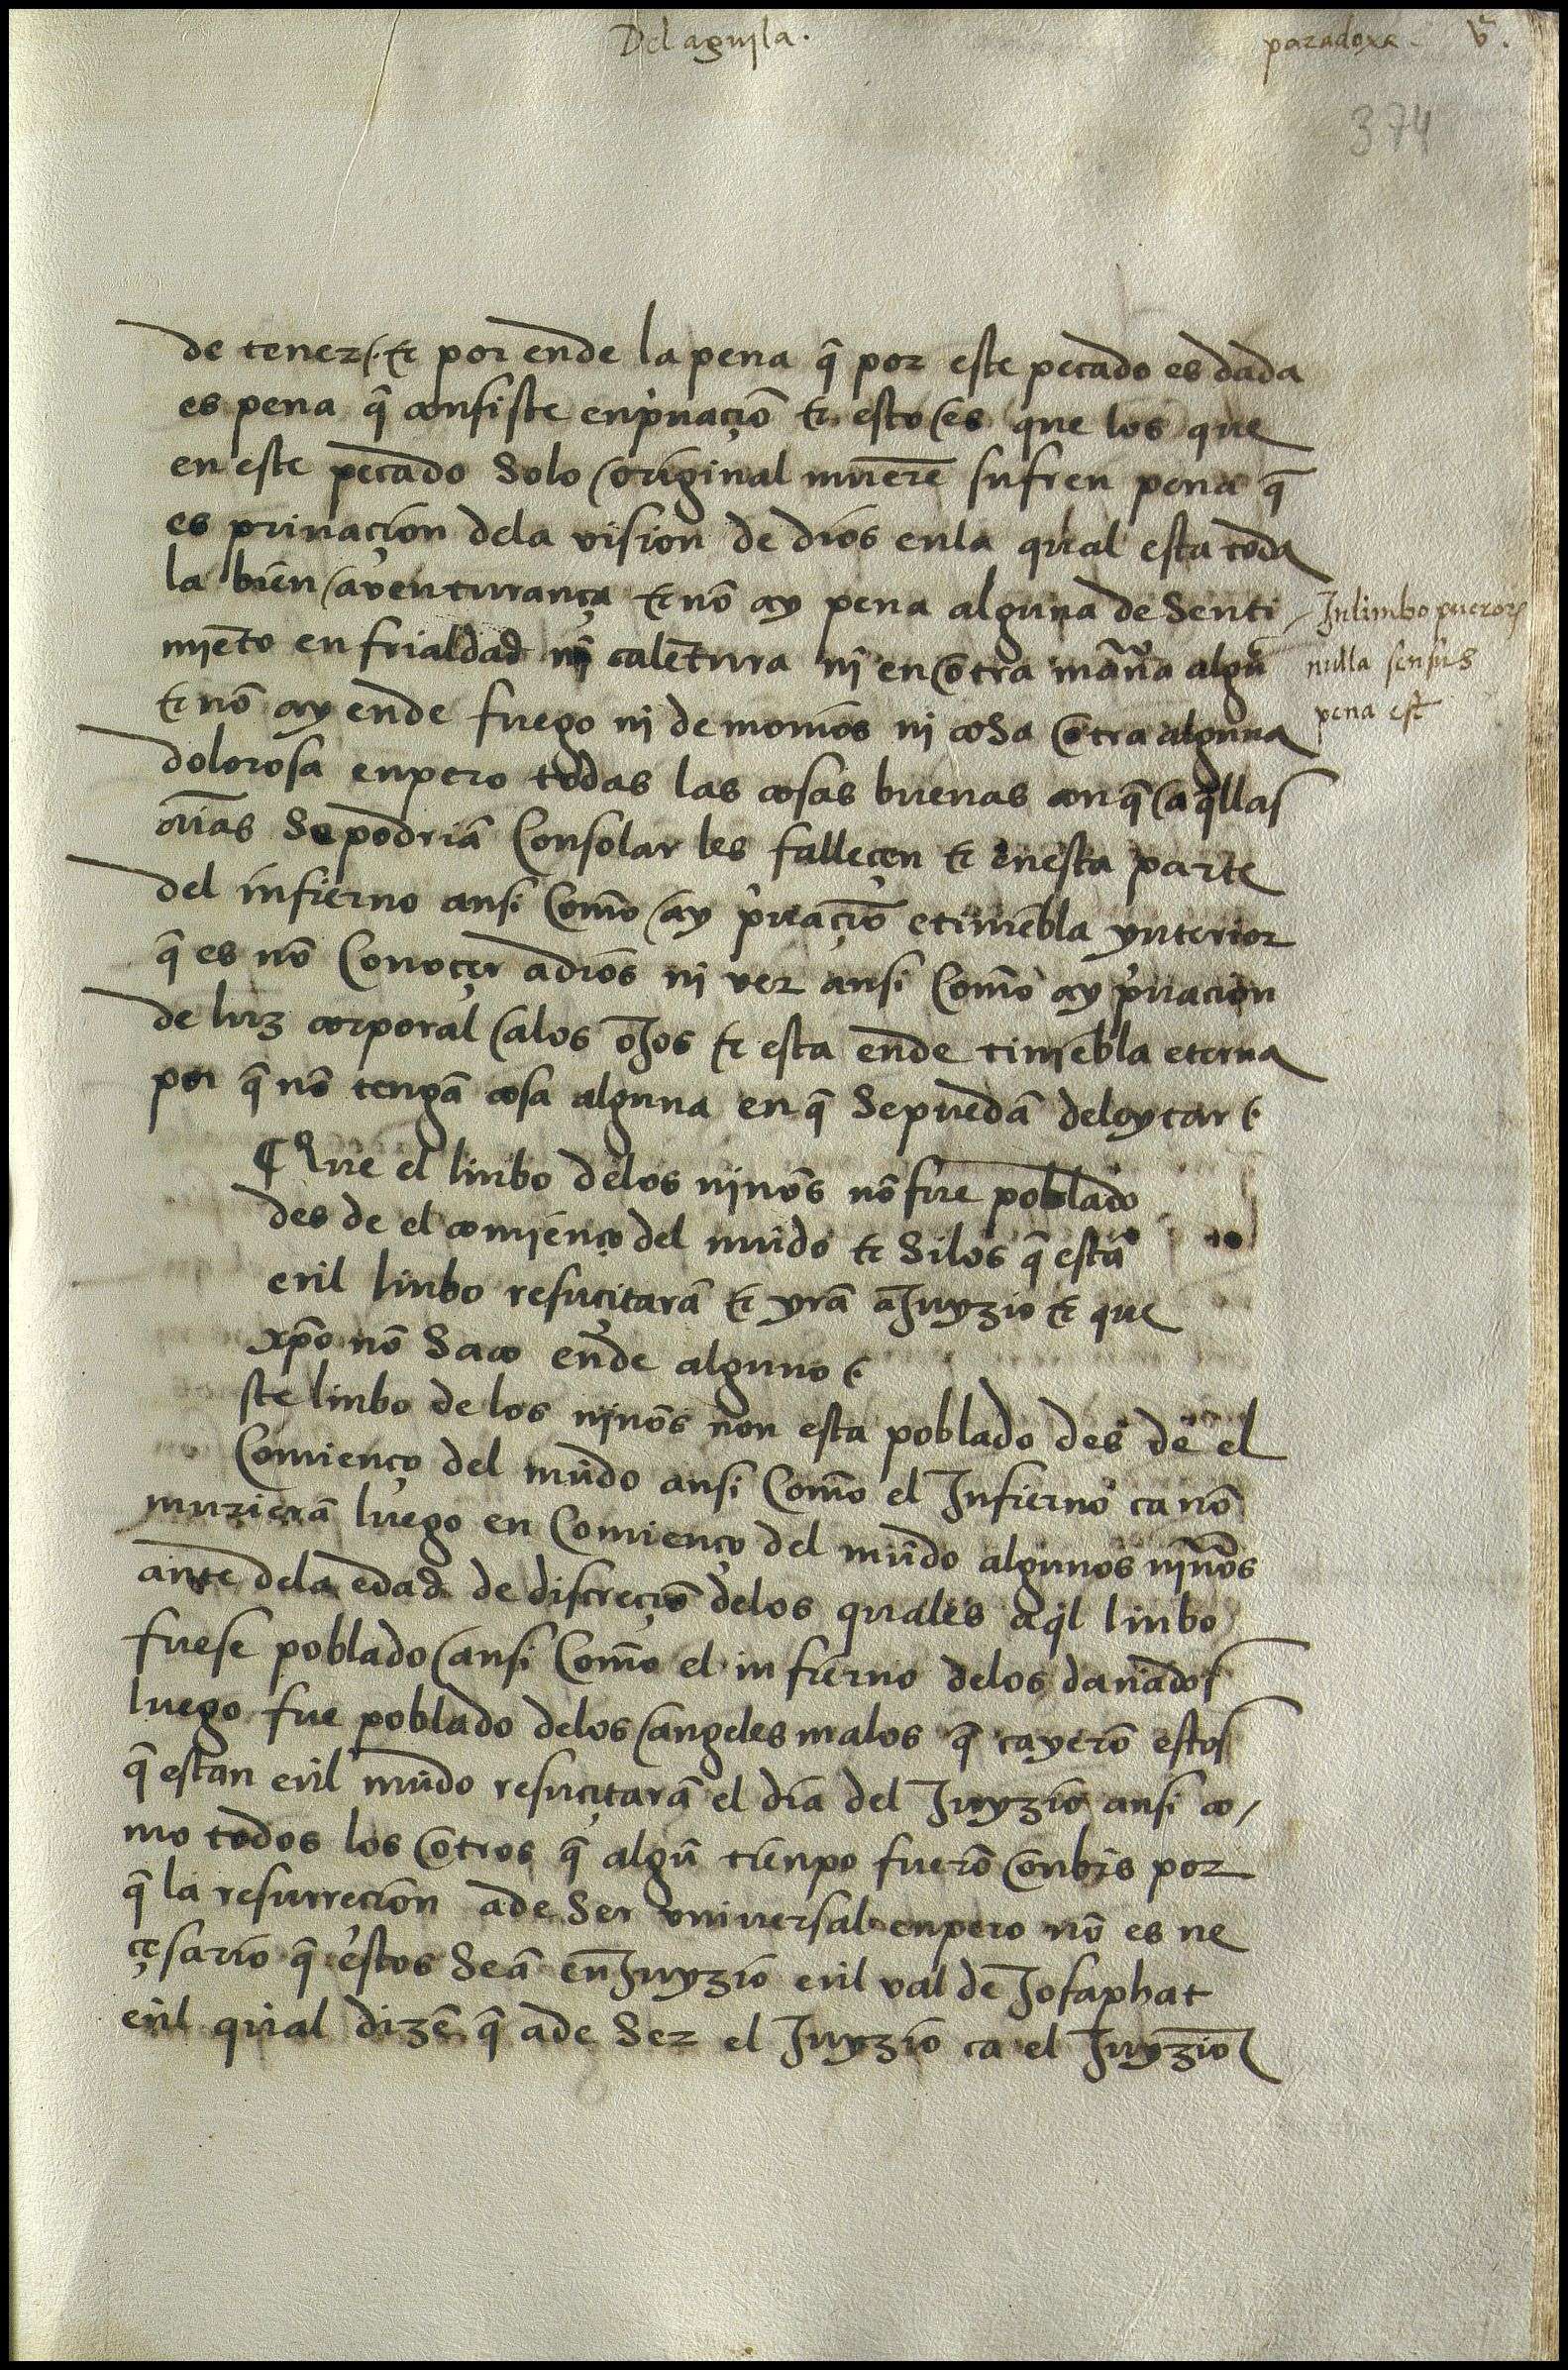 Del aguila.
paradoxa. v.
374
de tener. & por ende la pena q̃ por este pecado es dada
es pena q̃ consiste en p̉uaçiõ & esto es que los que
en este pecado solo original muerẽ sufren pena q̃
es priuaçion dela vision de dios enla qual esta toda
la bien auenturança & nõ ay pena alguna de senti
miẽto en frialdad nĩ calẽtura ni en otra mañ̃a algũ
& nõ ay ende fuego ni demonios ni cosa otra alguna
dolorosa enpero todas las cosas buenas con q̃ aq̃llas
aĩas se podriã consolar les falleçen & enesta parte
del infierno ansi como ay p̉uaçiõ e tiniebla ynterior
q̃ es nõ conoçer a dios ni ver ansi como ay p̉uaçion
de luz corporal alos ojos & esta ende tiniebla eterna
por q̃ nõ tengã cosa alguna en q̃ se puedã deleytar
Inlimbo pueror̃
nulla sensus
pena est
¶ Que el linbo delos niños nõ fue poblado
des de el comienço del mũdo & si los q̃ estã
enl linbo resuçitarã & yrã a Juyzio & que
xp̃o nõ saco ende alguno
ste linbo de los niños non esta poblado des de el
comienço del mũdo ansi como el Infierno ca nõ
murierã luego en comienço del mũdo algunos niños
ante dela edad de discreçiõ delos quales aq̃l linbo
fuese poblado ansi como el infierno delos dañados
luego fue poblado delos angeles malos q̃ cayerõ estos
q̃ estan enl mũdo resuçitarã el dia del Juyzio ansi co
mo todos los otros q̃ algũ tienpo fuerõ onbrs por
q̃ la resurreçion a de ser vniuersal enpero nõ es ne
çesario q̃ estos seã en Juyzio enl val de Josaphat
enl qual dizẽ q̃ a de ser el Juyzio ca el Juyzio